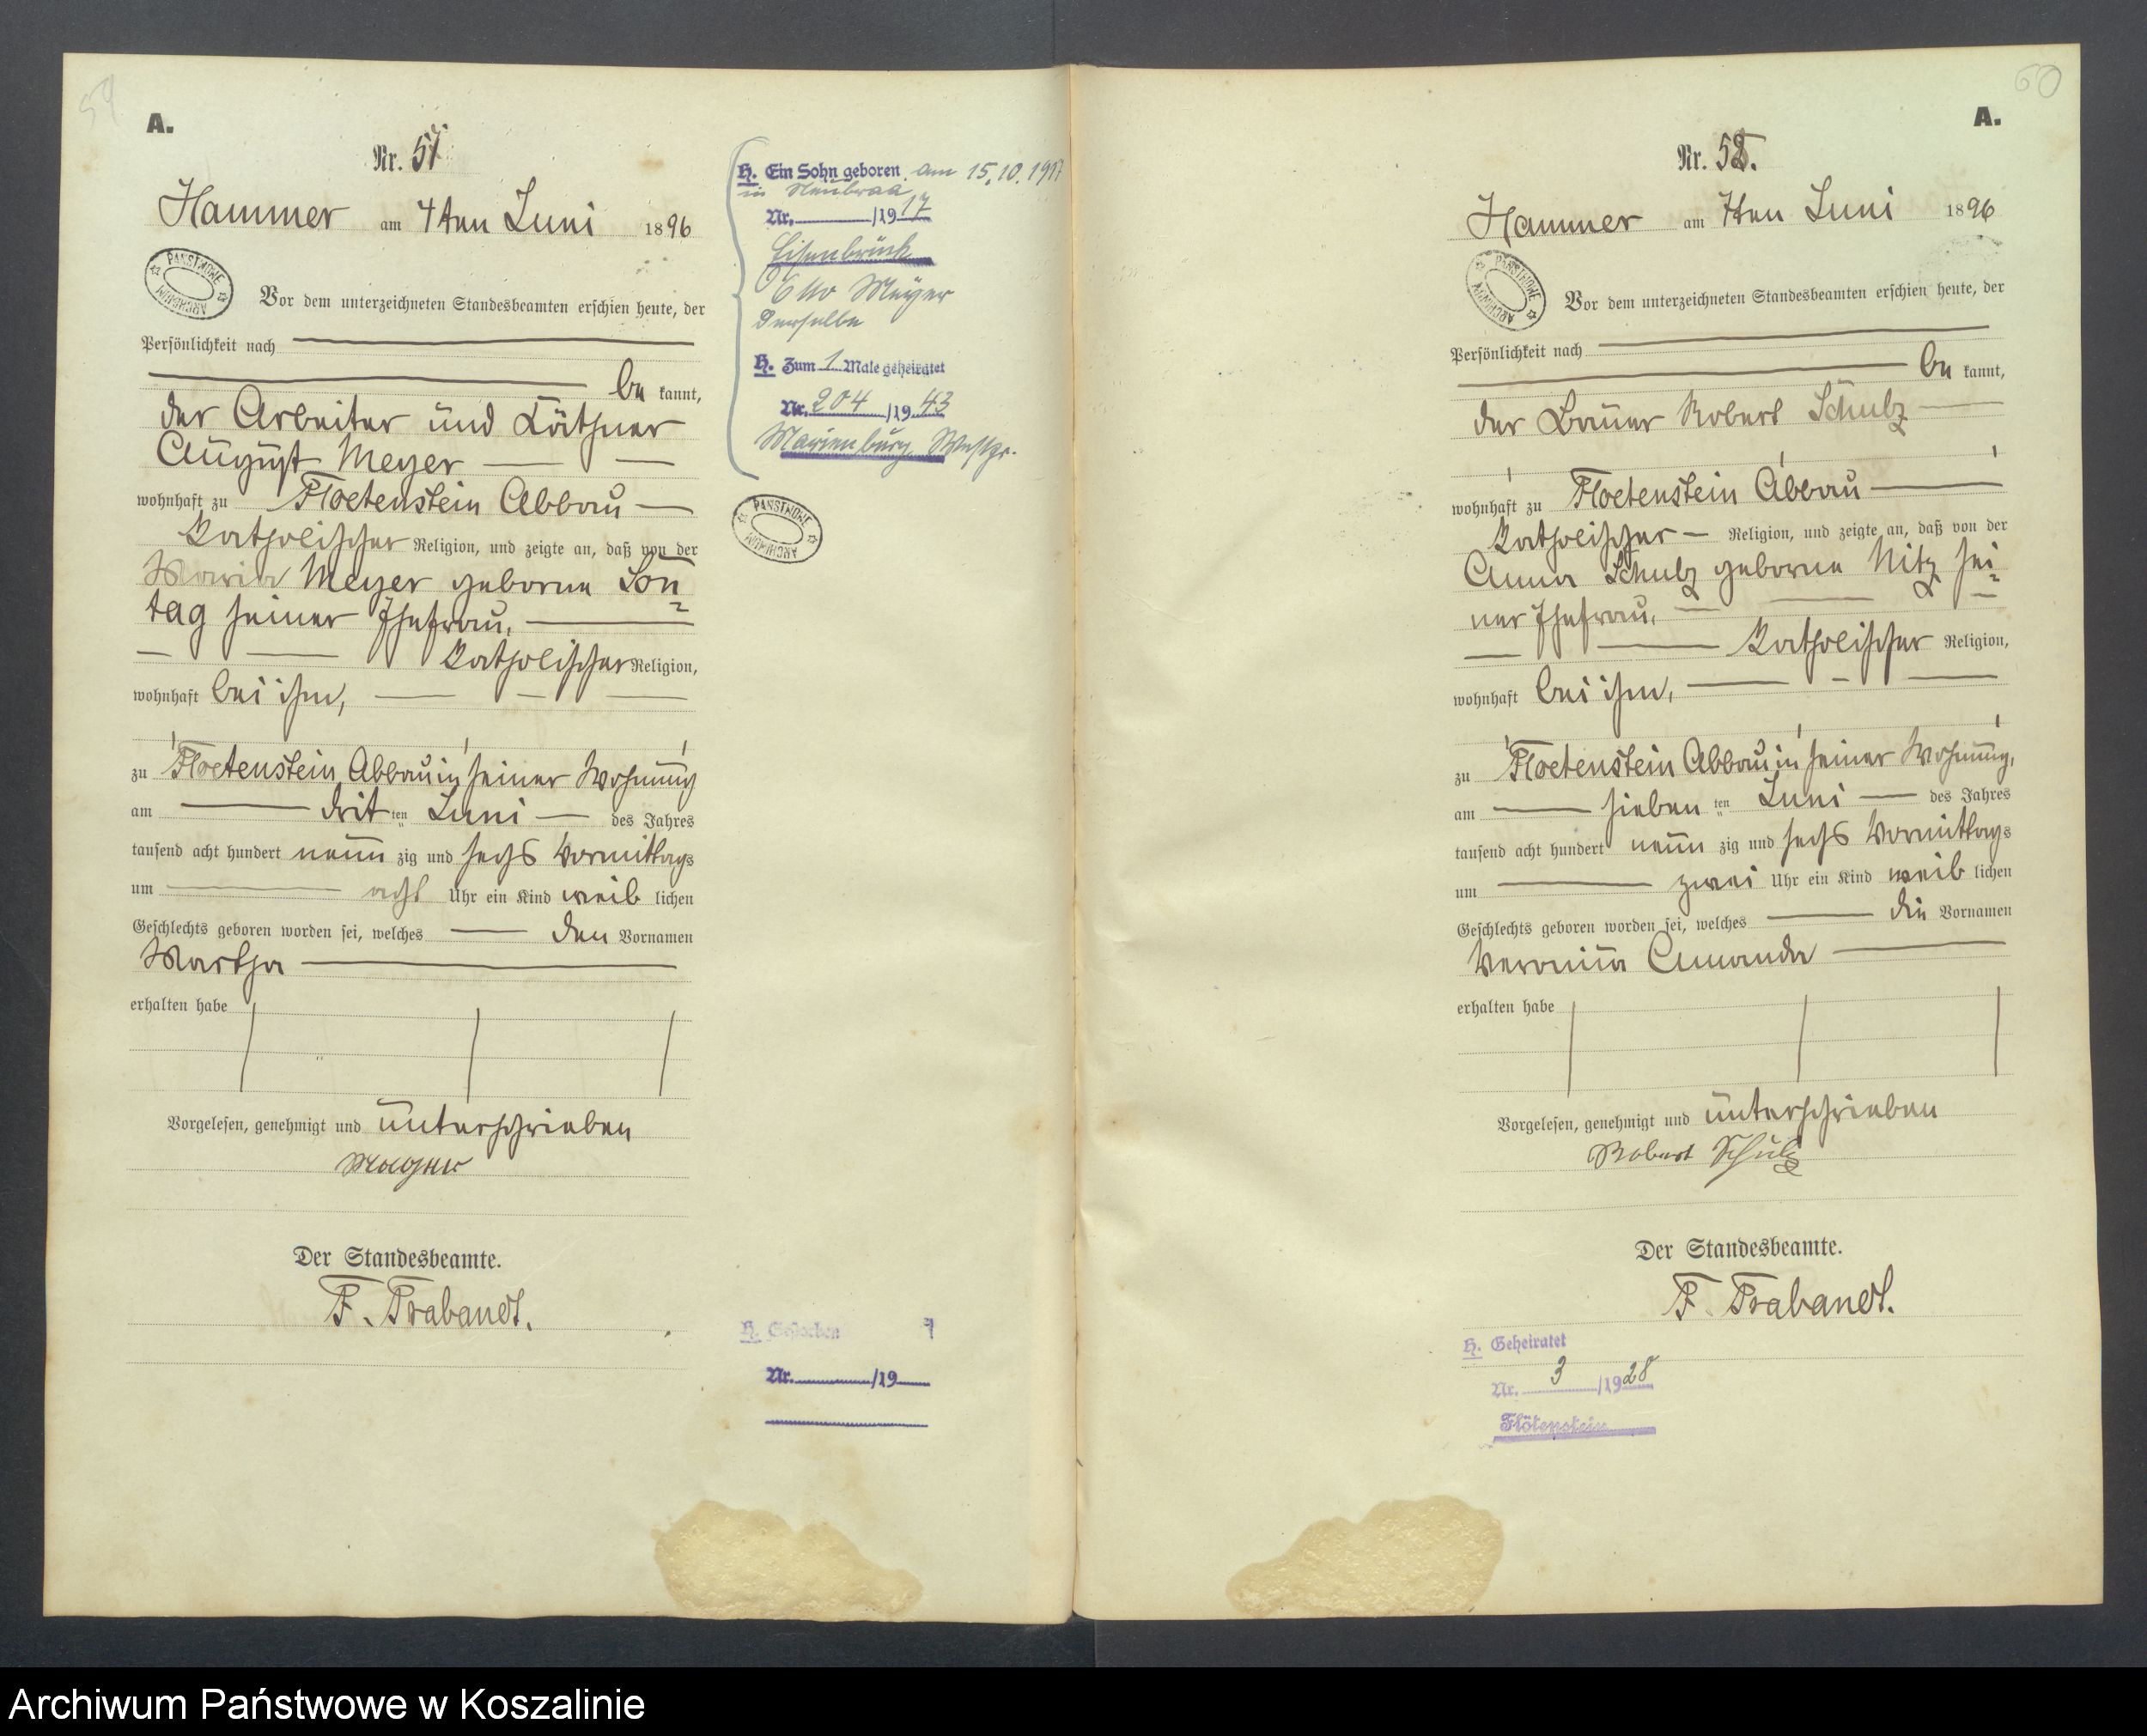 59
A.
Nr. 51
Hammer am 4ten Juni 1896
PAŃSTWOWE ARCHIWUM
Vor dem unterzeichneten Standesbeamten erschien heute, der
Persönlichkeit nach
be kannt,
der Arbeiter und Käthner
August Meyer
wohnhaft zu Floetenstein Abbau
katholischer Religion, und zeigte an, daß von der
Maria Meyer geborne Son
tag seiner Ehefrau,
katholischer Religion,
wohnhaft bei ihm,
zu Floetenstein Abbau in seiner Wohnung
am drit ten Juni des Jahres
tausend acht hundert neun zig und sechs Vormittags
um acht Uhr ein Kind weib lichen
Geschlechts geboren worden sei, welches den Vornamen
Martha
erhalten habe
Vorgelesen, genehmigt und unterschrieben
Meyer
Der Standesbeamte.
F. Trabandt.
H. Ein Sohn geboren am 15.10.1917
in Neubraa
Nr. /19 17
Eisenbrück
Otto Meyer
Derselbe
H. Zum 1 Male geheiratet
Nr. 204 /19 43
Marienburg Westpr.
PAŃSTWOWE ARCHIWUM
H. Gestorben
Nr. /19
60
A.
Nr. 52.
Hammer am 7ten Juni 1896
PAŃSTWOWE ARCHIWUM
Vor dem unterzeichneten Standesbeamten erschien heute, der
Persönlichkeit nach
be kannt,
der Bauer Robert Schulz
wohnhaft zu Floetenstein Abbau
katholischer Religion, und zeigte an, daß von der
Anna Schulz geborne Nitz sei
ner Ehefrau,
katholischer Religion,
wohnhaft bei ihm,
zu Floetenstein Abbau in seiner Wohnung,
am sieben ten Juni des Jahres
tausend acht hundert neun zig und sechs Vormittags
um zwei Uhr ein Kind weib lichen
Geschlechts geboren worden sei, welches die Vornamen
Veronika Amanda
erhalten habe
Vorgelesen, genehmigt und unterschrieben
Robert Schulz
Der Standesbeamte.
F. Trabandt.
H. Geheiratet
Nr. 3 /19 28
Flötenstein
Archiwum Państwowe w Koszalinie